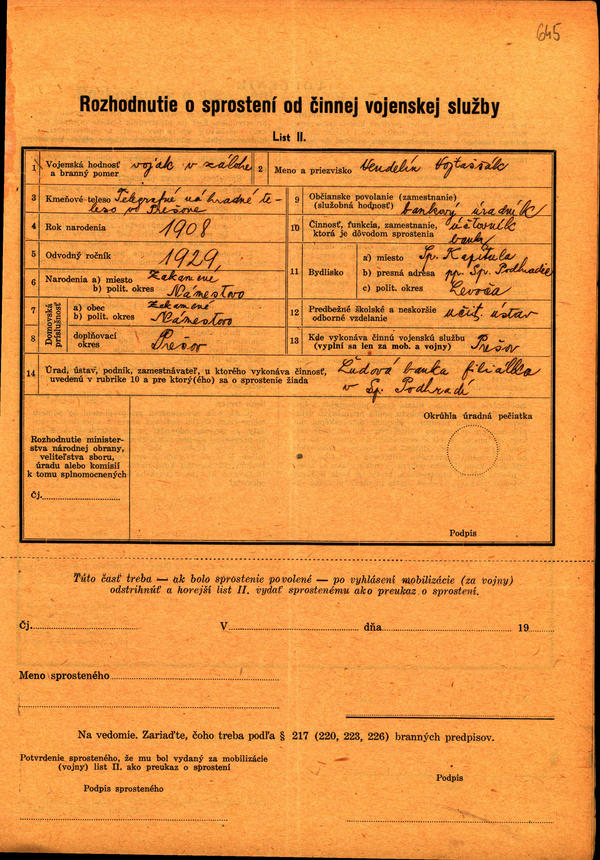 645
Rozhodnutie o sprostení od činnej vojenskej služby
List II.
1 Vojenská hodnosť a branný pomer vojak v zálohe
2 Meno a priezvisko Vendelín Vojtaššák
3 Kmeňové teleso Telegrafné náhradné te-
leso v Prešove
4 Rok narodenia 1908
5 Odvodný ročník 1929
6 Narodenia a) miesto Zakamené
b) polit. okres Námestovo
7 Domovská príslušnosť a) obec Zakamené
b) polit. okres Námestovo
8 doplňovací okres Prešov
9 Občianske povolanie (zamestnanie) (služobná hodnosť) bankový úradník
10 Činnosť, funkcia, zamestnanie, ktorá je dôvodom sprostenia účtovník banky
11 Bydlisko a) miesto Sp. Kapitula
b) presná adresa pp. Sp. Podhradie
c) polit. okres Levoča
12 Predbežné školské a neskoršie odborné vzdelanie učit. ústav
13 Kde vykonáva činnú vojenskú službu (vyplní sa len za mob. a vojny) Prešov
14 Úrad, ústav, podnik, zamestnávateľ, u ktorého vykonáva činnosť,
uvedenú v rubrike 10 a pre ktorý(ého) sa o sprostenie žiada
Ľudová banka filiálka
v Sp. Podhradí
Okrúhla úradná pečiatka
Rozhodnutie minister-
stva národnej obrany,
veliteľstva sboru,
úradu alebo komisií
k tomu splnomocnených
Čj.
Podpis
Túto časť treba — ak bolo sprostenie povolené — po vyhlásení mobilizácie (za vojny)
odstrihnúť a horejší list II. vydať sprostenému ako preukaz o sprostení.
Čj. V dňa 19
Meno sprosteného
Na vedomie. Zariaďte, čoho treba podľa § 217 (220, 223, 226) branných predpisov.
Potvrdenie sprosteného, že mu bol vydaný za mobilizácie
(vojny) list II. ako preukaz o sprostení
Podpis
Podpis sprosteného